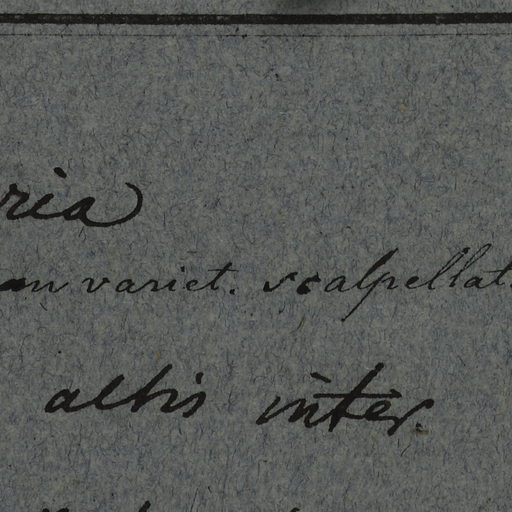 ria
an variet. scalpellat.
altis inter.